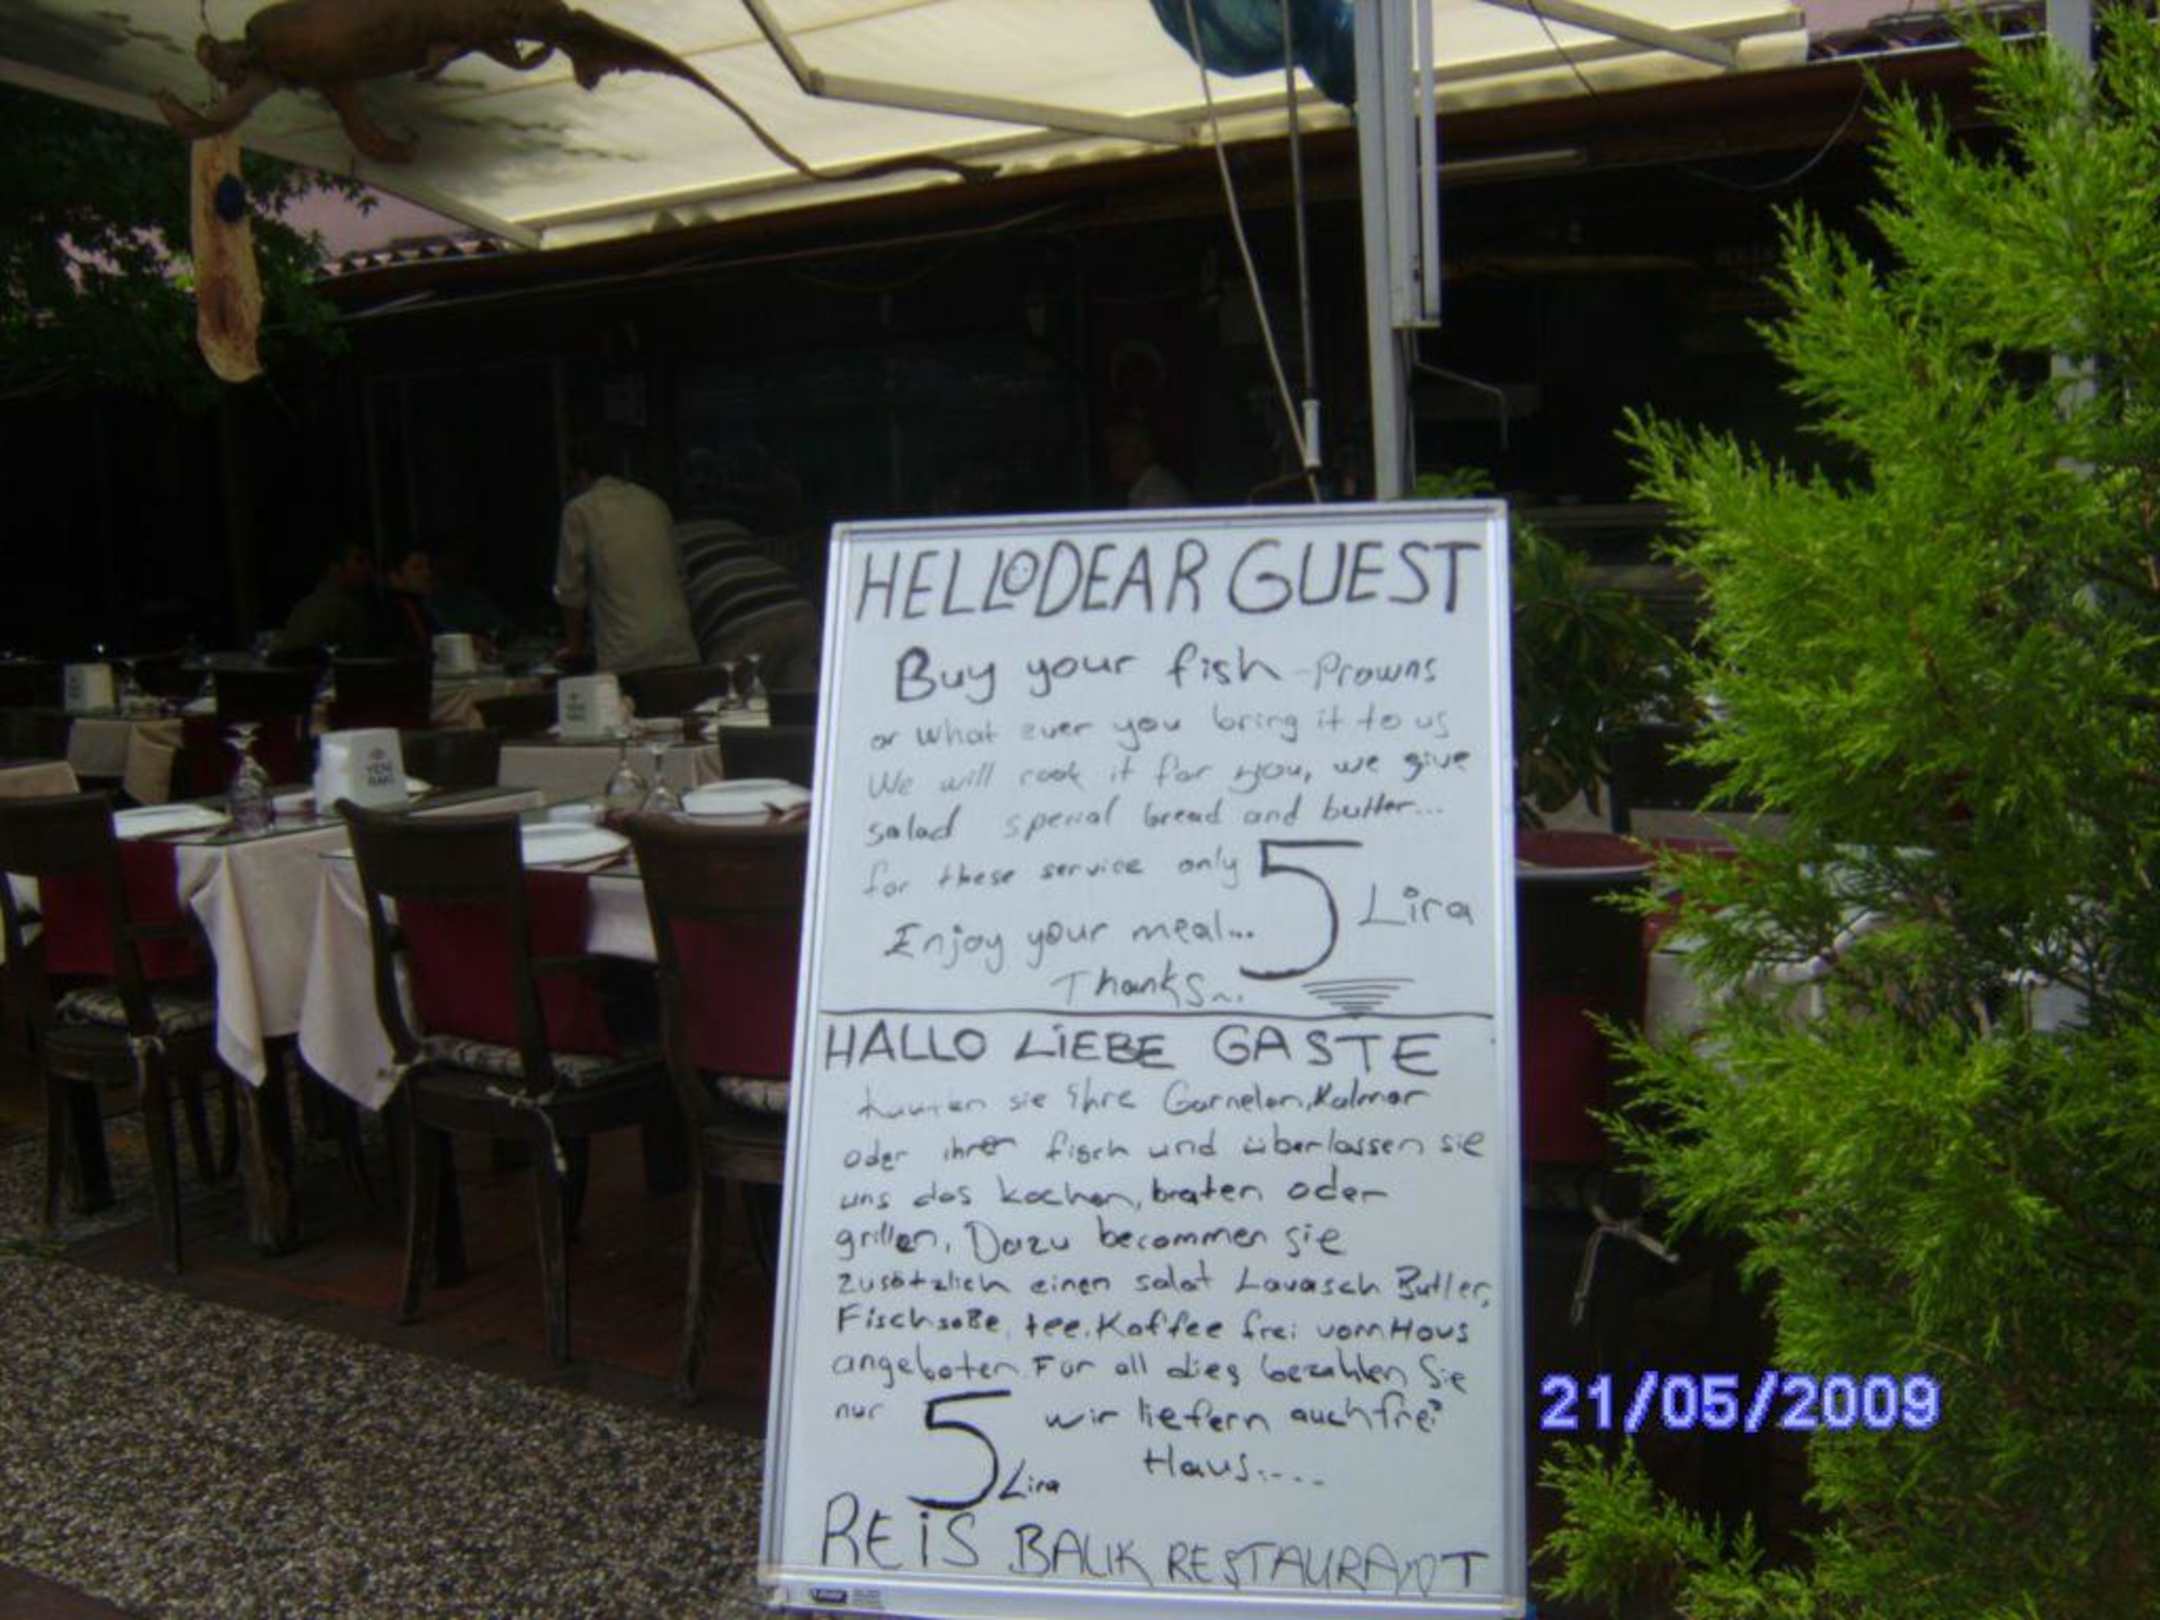 YENİ
RAKI
HELLO DEAR GUEST
Buy your fish - Prawns
or what ever you bring it to us
We will cook it for you, we give
salad special bread and butter...
for these service only 5 Lira
Enjoy your meal...
Thanks...
HALLO LiEBE GASTE
kaufen sie ihre Garnelen, Kalmar
oder ihrer fisch und überlassen sie
uns das kochen, braten oder
grillen, Dazu becommen sie
zusätzlich einen salat Lavasch Butter,
Fischsoße, tee, Kaffee frei vom Haus
angeboten Für all dies bezahlen Sie
nur 5 Lira wir liefern auch frei
Haus....
REiS BALIK RESTAURANT
21/05/2009